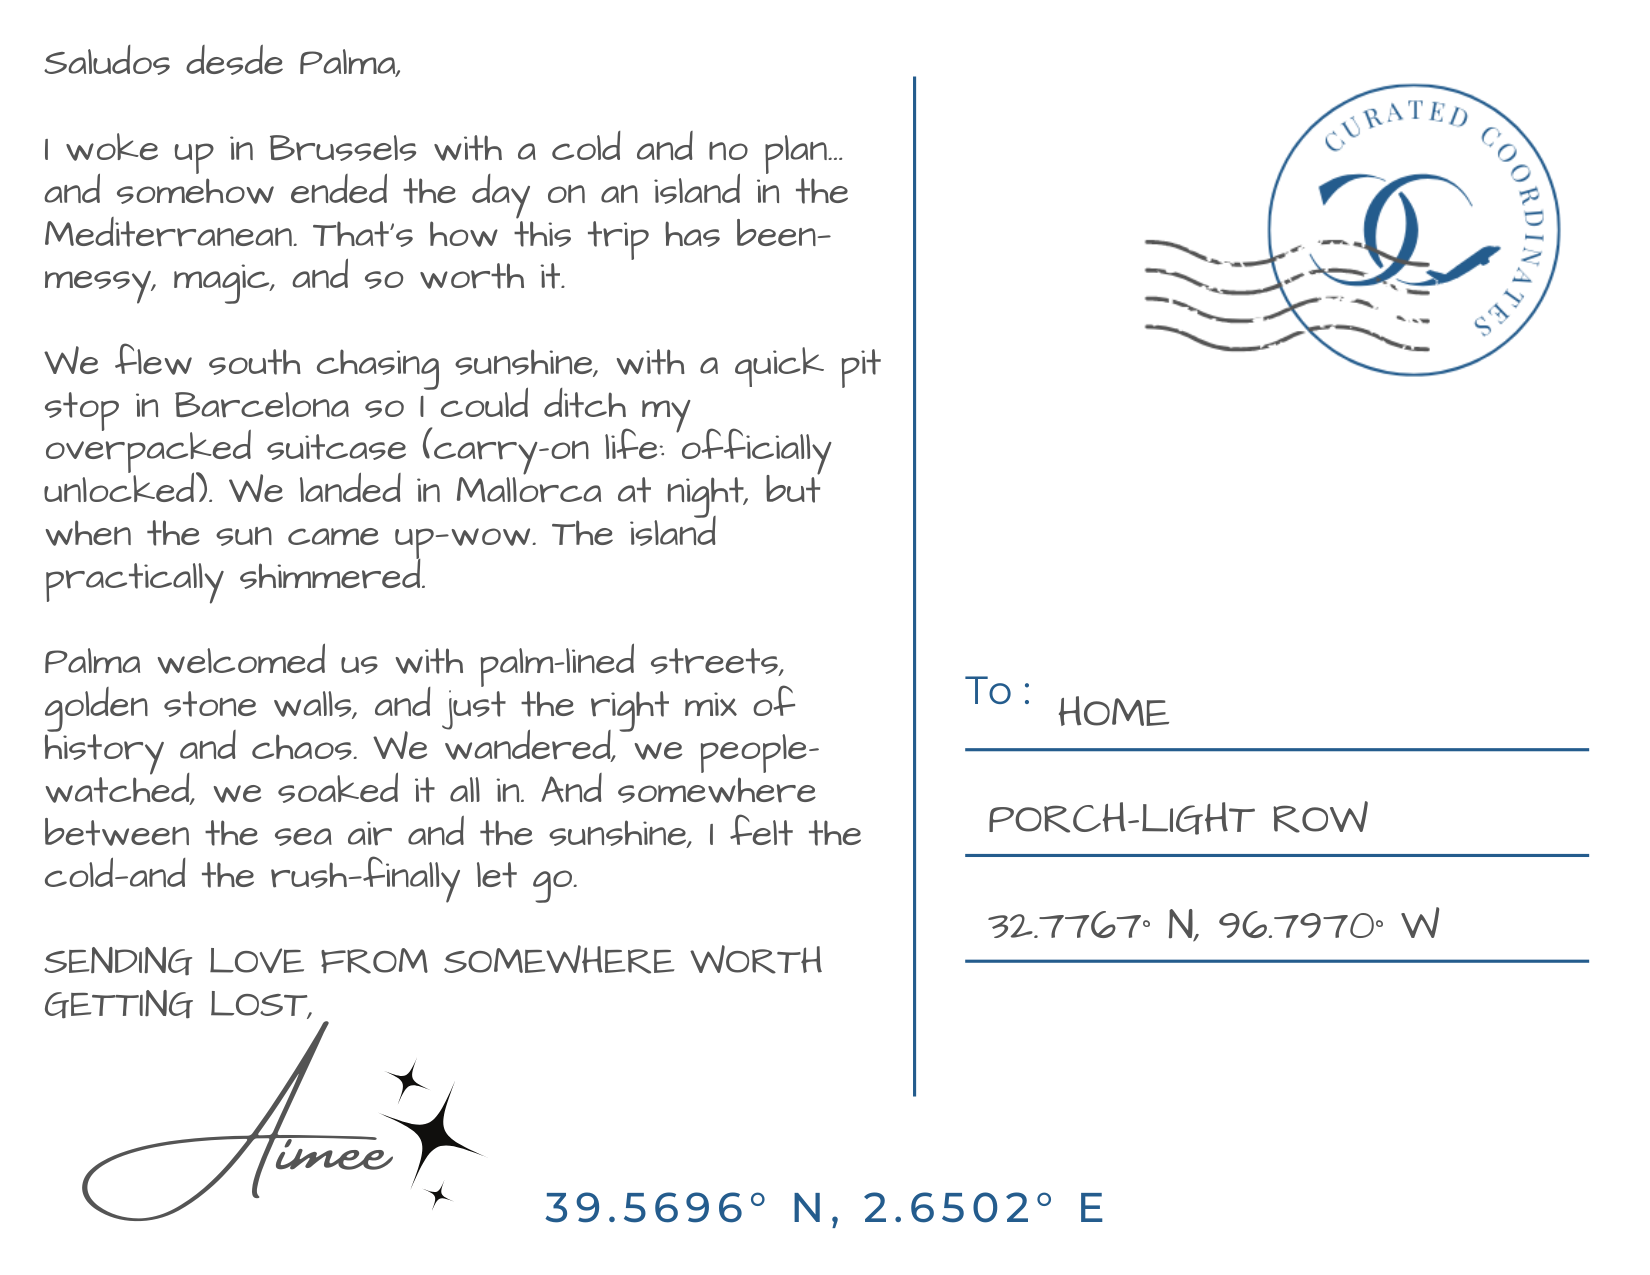 Saludos desde Palma,
I woke up in Brussels with a cold and no plan...
and somehow ended the day on an island in the
Mediterranean. That's how this trip has been-
messy, magic, and so worth it.
We flew south chasing sunshine, with a quick pit
stop in Barcelona so I could ditch my
overpacked suitcase (carry-on life: officially
unlocked). We landed in Mallorca at night, but
when the sun came up-wow. The island
practically shimmered.
Palma welcomed us with palm-lined streets,
golden stone walls, and just the right mix of
history and chaos. We wandered, we people-
watched, we soaked it all in. And somewhere
between the sea air and the sunshine, I felt the
cold-and the rush-finally let go.
SENDING LOVE FROM SOMEWHERE WORTH
GETTING LOST,
Aimee
CURATED COORDINATES
CC
To: HOME
PORCH-LIGHT ROW
32.7767° N, 96.7970° W
39.5696° N, 2.6502° E